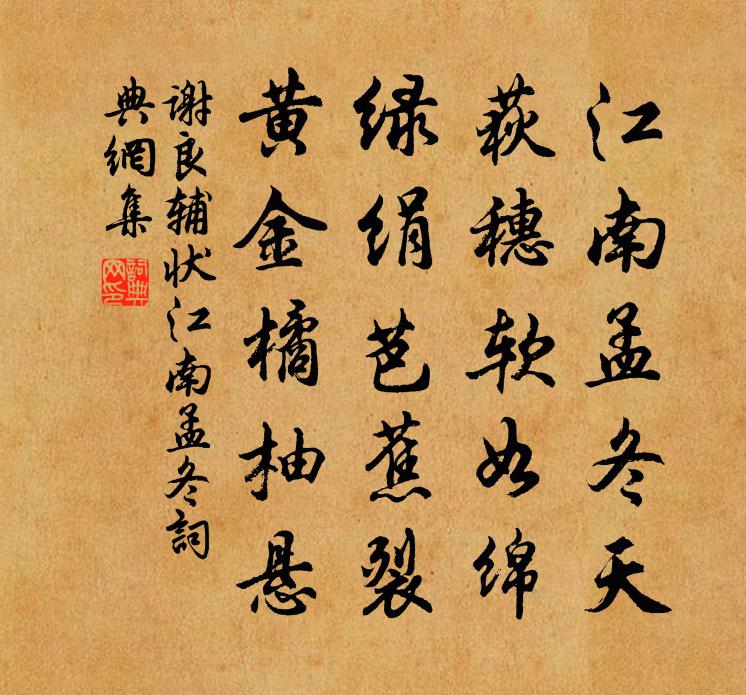 江南孟冬天
荻穗软如绵
绿绢芭蕉裂
黄金橘柚悬
谢良辅状江南孟冬詞
典網集
詞典網印